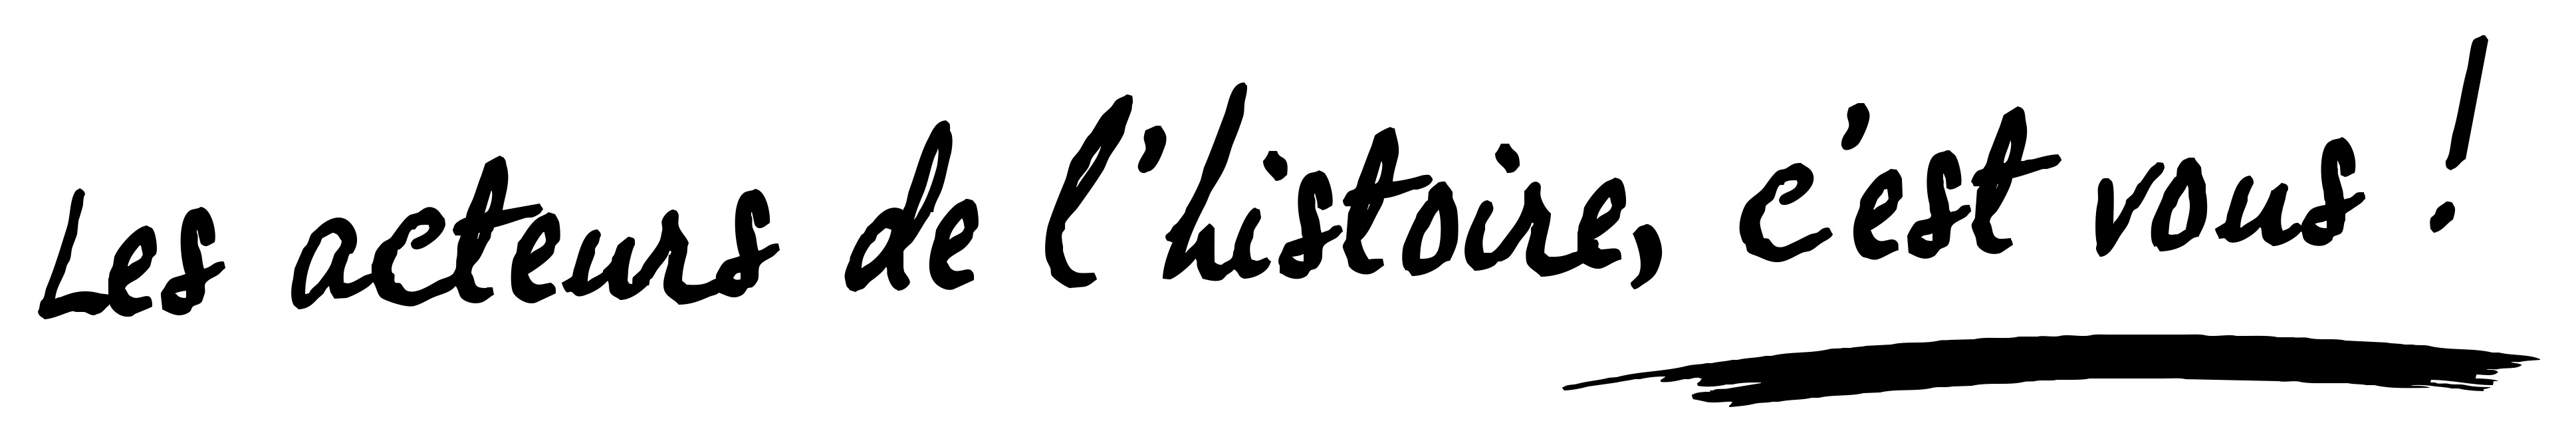 Les acteurs de l'histoire, c'est vous !